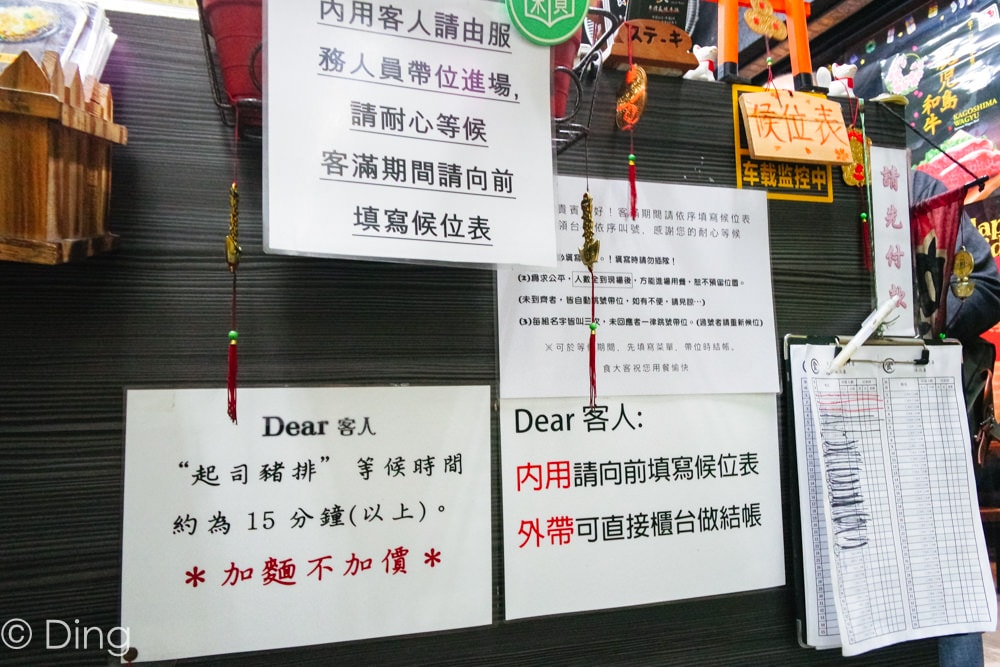 內用客人請由服
務人員帶位進場,
請耐心等候
客滿期間請向前
填寫候位表
ステーキ
候位表
车载监控中
和牛
KAGOSHIMA
WAGYU
請先付款
好！客滿期間請依序填寫候位表
依序叫號、感謝您的耐心等候
。！填寫時請勿插隊！
(2)為求公平，人數全到現場後，方能進場用餐，恕不預留位置。
(未到齊者，皆自動跳號帶位，如有不便，請見諒…)
(3)每組名字皆叫三次，未回應者一律跳號帶位。(過號者請重新候位)
※可於等候期間、先填寫菜單、帶位時結帳。
食大客祝您用餐愉快
Dear 客人
“起司豬排” 等候時間
約為 15 分鐘(以上)。
* 加麵不加價 *
Dear 客人:
內用請向前填寫候位表
外帶可直接櫃台做結帳
© Ding